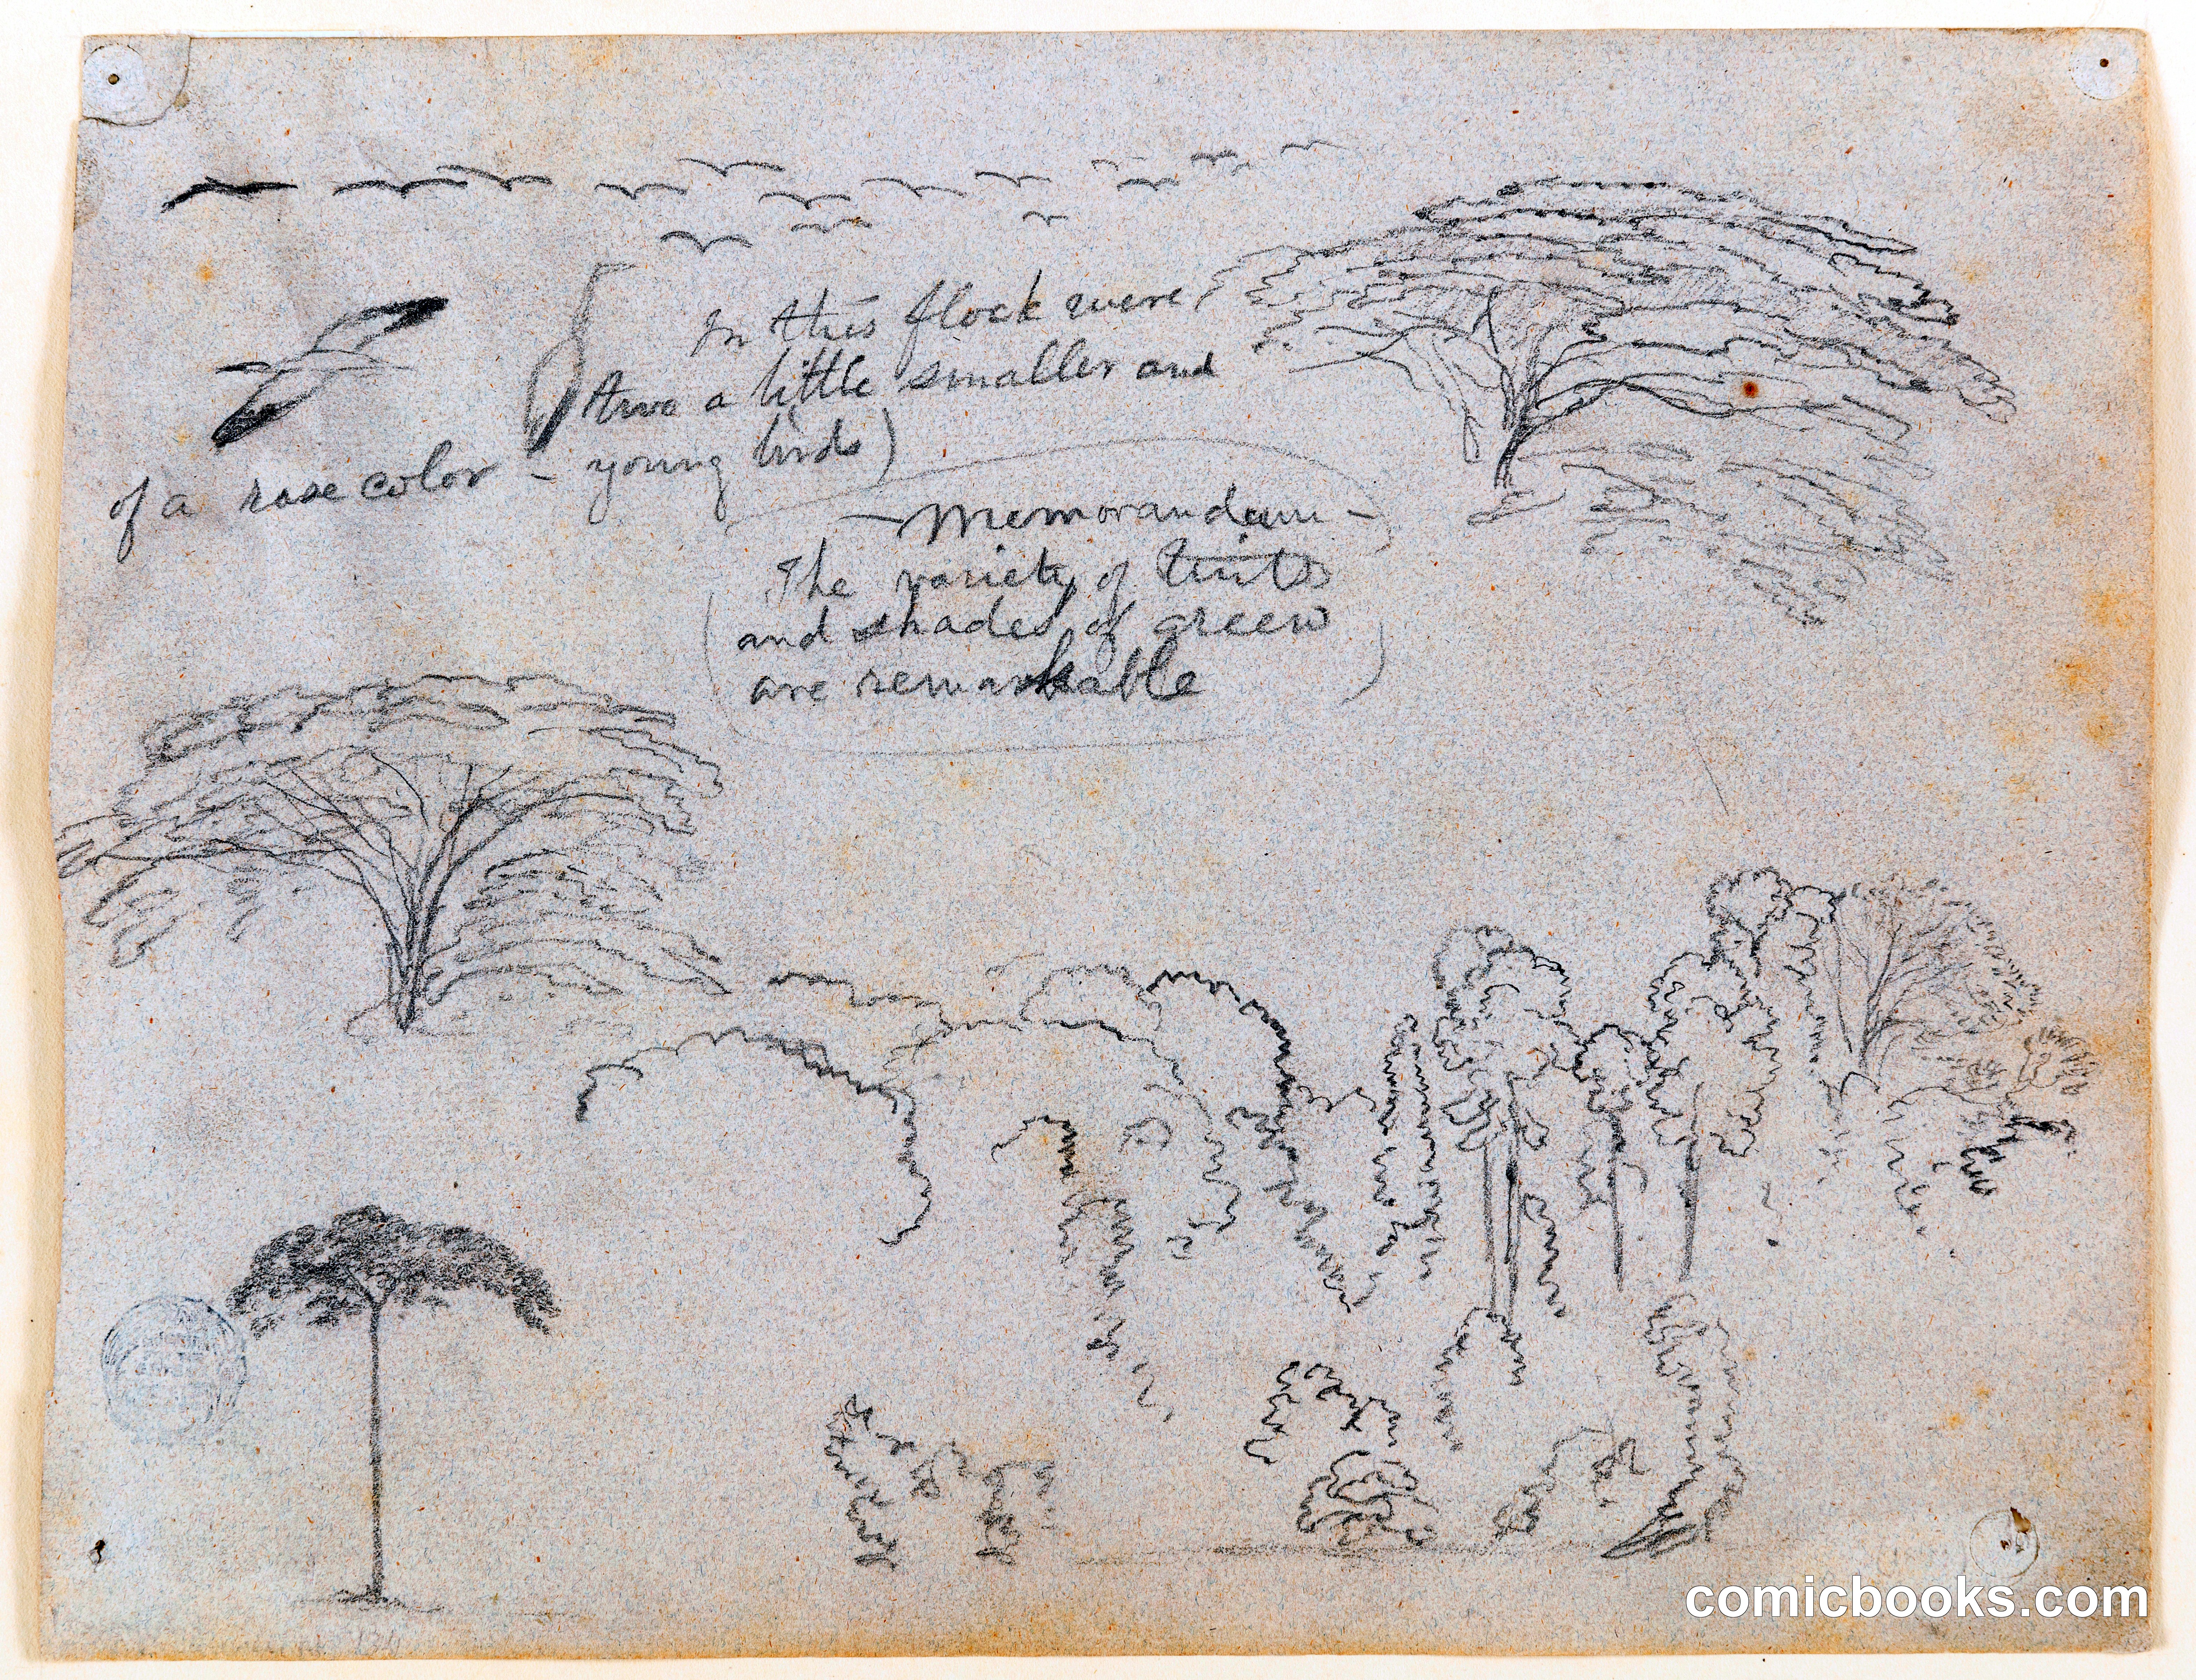 In this flock were
two a little smaller and
of a rose color - young birds)
- Memorandum -
The variety of tints
and shades of green
are remarkable
comicbooks.com